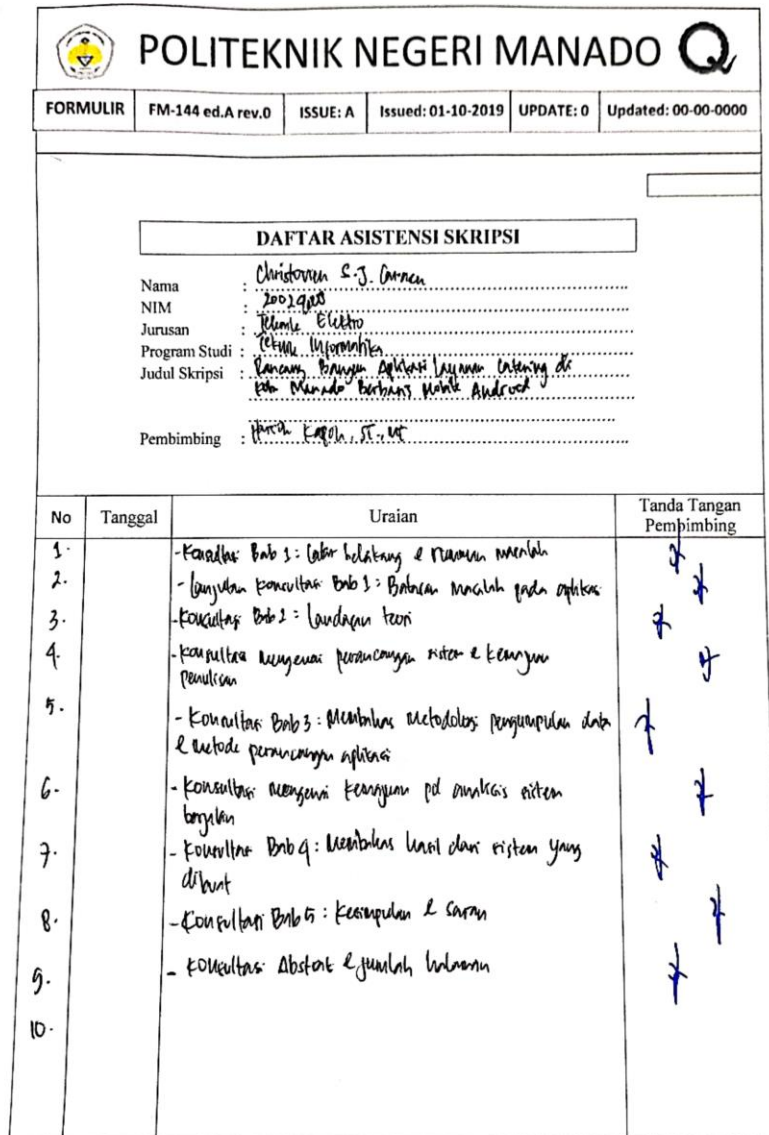 POLITEKNIK NEGERI MANADO
FORMULIR FM-144 ed.A rev.0 ISSUE: A Issued: 01-10-2019 UPDATE: 0 Updated: 00-00-0000
DAFTAR ASISTENSI SKRIPSI
Nama : S.J.
NIM :
Jurusan : Elektro
Program Studi : Teknik Informatika
Judul Skripsi : Rancang Bangun Aplikasi Layanan Catering di
Kota Manado Berbasis Mobile Android
Pembimbing : Kapoh, ST., MT
No Tanggal Uraian Tanda Tangan
Pembimbing
1. - Konsultasi Bab 1 : Latar belakang & rumusan masalah
2. - Lanjutan Konsultasi Bab 1 : Batasan Masalah pada aplikasi
3. - Konsultasi Bab 2 : Landasan teori
4. - Konsultasi mengenai perancangan sistem &
penulisan
5. - Konsultasi Bab 3 : Membahas Metodologi pengumpulan data
& metode perancangan aplikasi
6. - Konsultasi mengenai pd analisis sistem
berjalan
7. - Konsultasi Bab 4 : Membahas hasil dari sistem yang
dibuat
8. - Konsultasi Bab 5 : Kesimpulan & saran
9. - Konsultasi Abstrak & jumlah halaman
10.